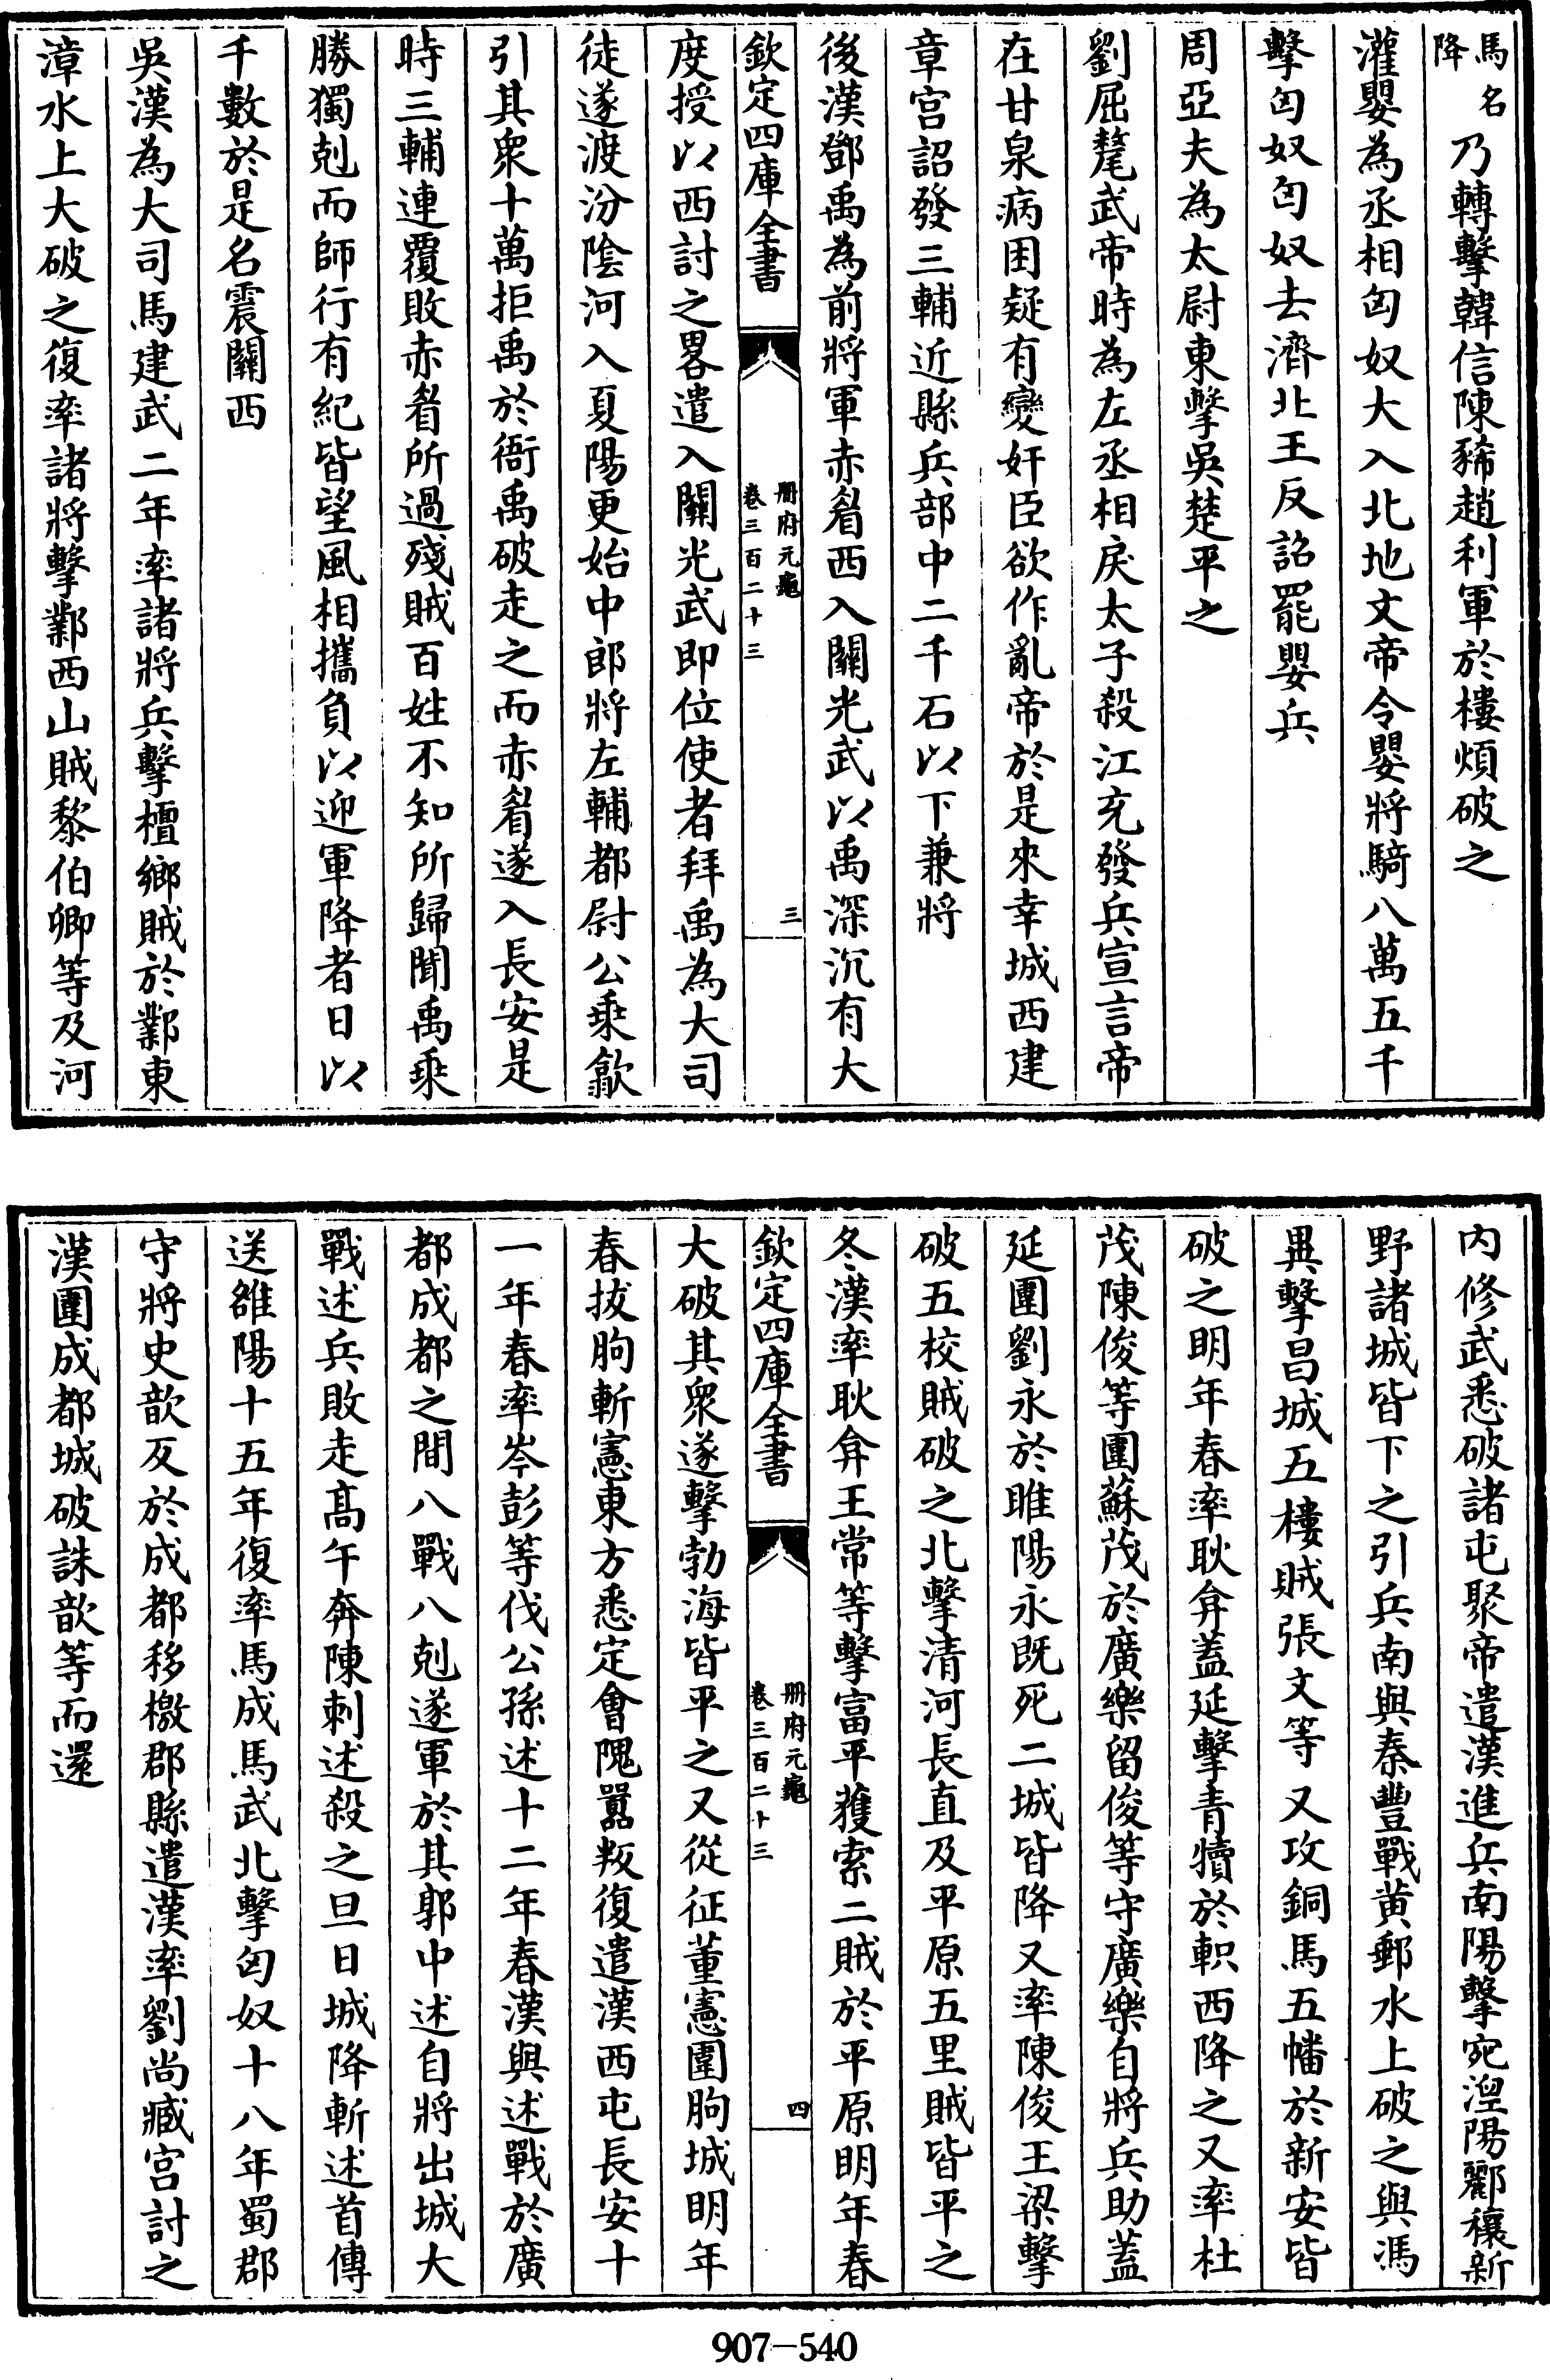 馬名
降
乃轉擊韓信陳豨趙利軍於樓煩破之
灌嬰為丞相匈奴大入北地文帝令嬰將騎八萬五千
擊匈奴匈奴去濟北王反詔罷嬰兵
周亞夫為太尉東擊吳楚平之
劉屈氂武帝時為左丞相戾太子殺江充發兵宣言帝
在甘泉病困疑有變奸臣欲作亂帝於是來幸城西建
章宫詔發三輔近縣兵部中二千石以下兼將
後漢鄧禹為前將軍赤眉西入關光武以禹深沉有大
欽定四庫全書
冊府元龜
卷三百二十三
三
度授以西討之畧遣入關光武即位使者拜禹為大司
徒遂渡汾陰河入夏陽更始中郎將左輔都尉公乗歙
引其衆十萬拒禹於衙禹破走之而赤眉遂入長安是
時三輔連覆敗赤眉所過殘賊百姓不知所歸聞禹乗
勝獨剋而師行有紀皆望風相攜負以迎軍降者日以
千數於是名震關西
吳漢為大司馬建武二年率諸將兵擊檀鄉賊於鄴東
漳水上大破之復率諸將擊鄴西山賊黎伯卿等及河
内修武悉破諸屯聚帝遣漢進兵南陽擊宛湼陽酈穰新
野諸城皆下之引兵南與秦豐戰黄郵水上破之與馮
異擊昌城五樓賊張文等又攻銅馬五幡於新安皆
破之明年春率耿弇蓋延擊青犢於軹西降之又率杜
茂陳俊等圍蘇茂於廣樂留俊等守廣樂自將兵助蓋
延圍劉永於睢陽永既死二城皆降又率陳俊王梁擊
破五校賊破之北擊清河長直及平原五里賊皆平之
冬漢率耿弇王常等擊富平獲索二賊於平原明年春
欽定四庫全書
冊府元龜
卷三百二十三
四
大破其衆遂擊勃海皆平之又從征董憲圍朐城明年
春拔朐斬憲東方悉定會隗囂叛復遣漢西屯長安十
一年春率岑彭等伐公孫述十二年春漢與述戰於廣
都成都之間八戰八剋遂軍於其郭中述自將出城大
戰述兵敗走髙午奔陳刺述殺之旦日城降斬述首傳
送雒陽十五年復率馬成馬武北擊匈奴十八年蜀郡
守將史歆反於成都移檄郡縣遣漢率劉尚臧宫討之
漢圍成都城破誅歆等而還
907-540